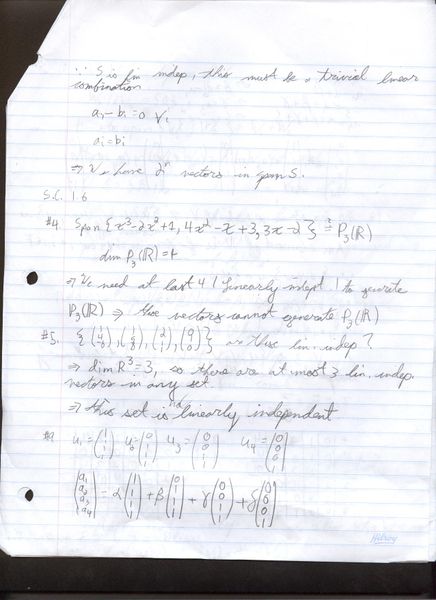 ∵ S is lin indep, this must be a trivial linear
combination
aᵢ - bᵢ = 0 ∀i
aᵢ = bᵢ
⇒ We have 2ⁿ vectors in span S.
S.C. 1.6
#4. Span {x³-2x²+1, 4x²-x+3, 3x-2} ≟ P₃(ℝ)
dim P₃(ℝ) = 4
⇒ We need at least 4 (linearly indept.) to generate
P₃(ℝ) ⇒ these vectors cannot generate P₃(ℝ)
#5. are these lin. indep?
⇒ dim ℝ³ = 3, so there are at most 3 lin. indep.
vectors in any set.
⇒ this set is not linearly independent
#9 u₁ = (1 1 1 1) u₂ = (0 1 1 1) u₃ = (0 0 1 1) u₄ = (0 0 0 1)
(a₁ a₂ a₃ a₄) = α(1 1 1 1) + β(0 1 1 1) + γ(0 0 1 1) + δ(0 0 0 1)
Hilroy